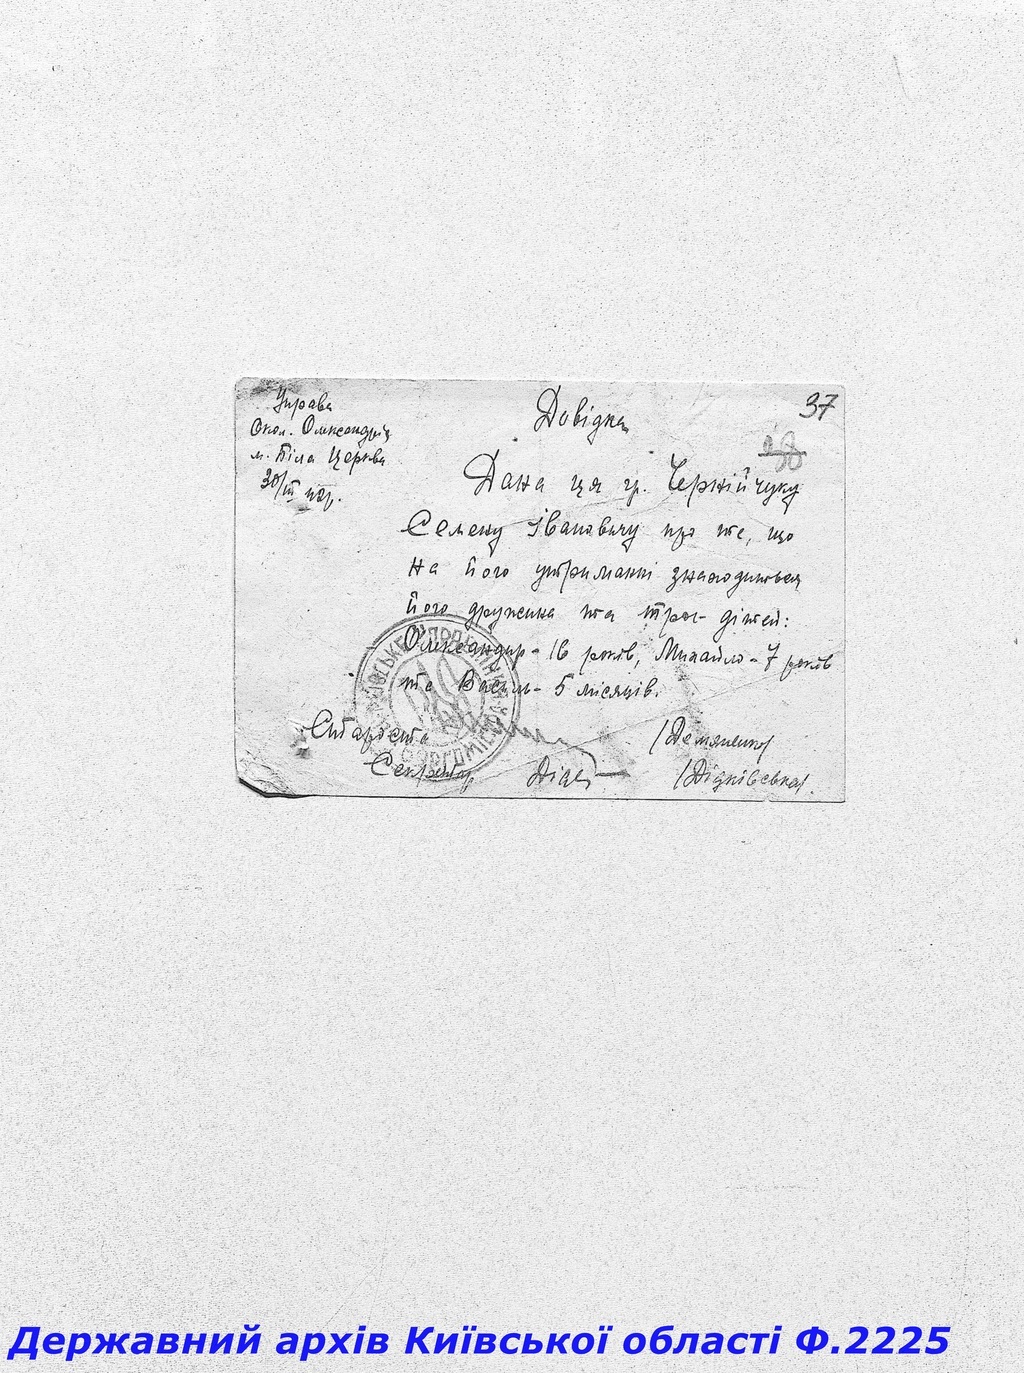 Управа
Окол. Олександрія
м. Біла Церква
30/III 42р.
Довідка
37
38
Дана ця гр. Чернійчуку
Семену Івановичу про те, що
на його утриманні знаходиться
його дружина та троє дітей:
Олександр - 16 років, Михайло - 7 років
та Василь - 5 місяців.
Староста /Демяненко/
Секретар Дідк /Дідківська/.
Державний архів Київської області Ф.2225